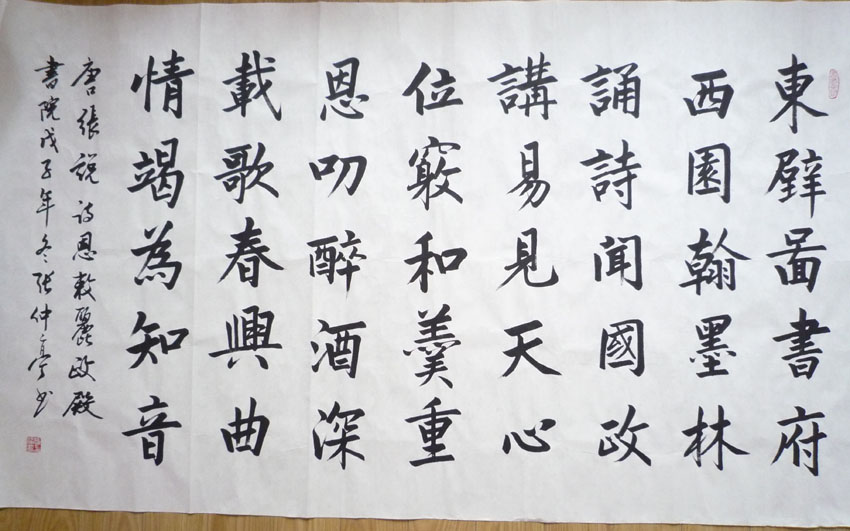 東壁啚書府
西園翰墨林
誦詩聞國政
講易見天心
位竅和羹重
恩叨醉酒深
載歌春興曲
情竭為知音
唐張説诗恩敕麗政殿
書院戊子年冬张仲亭书